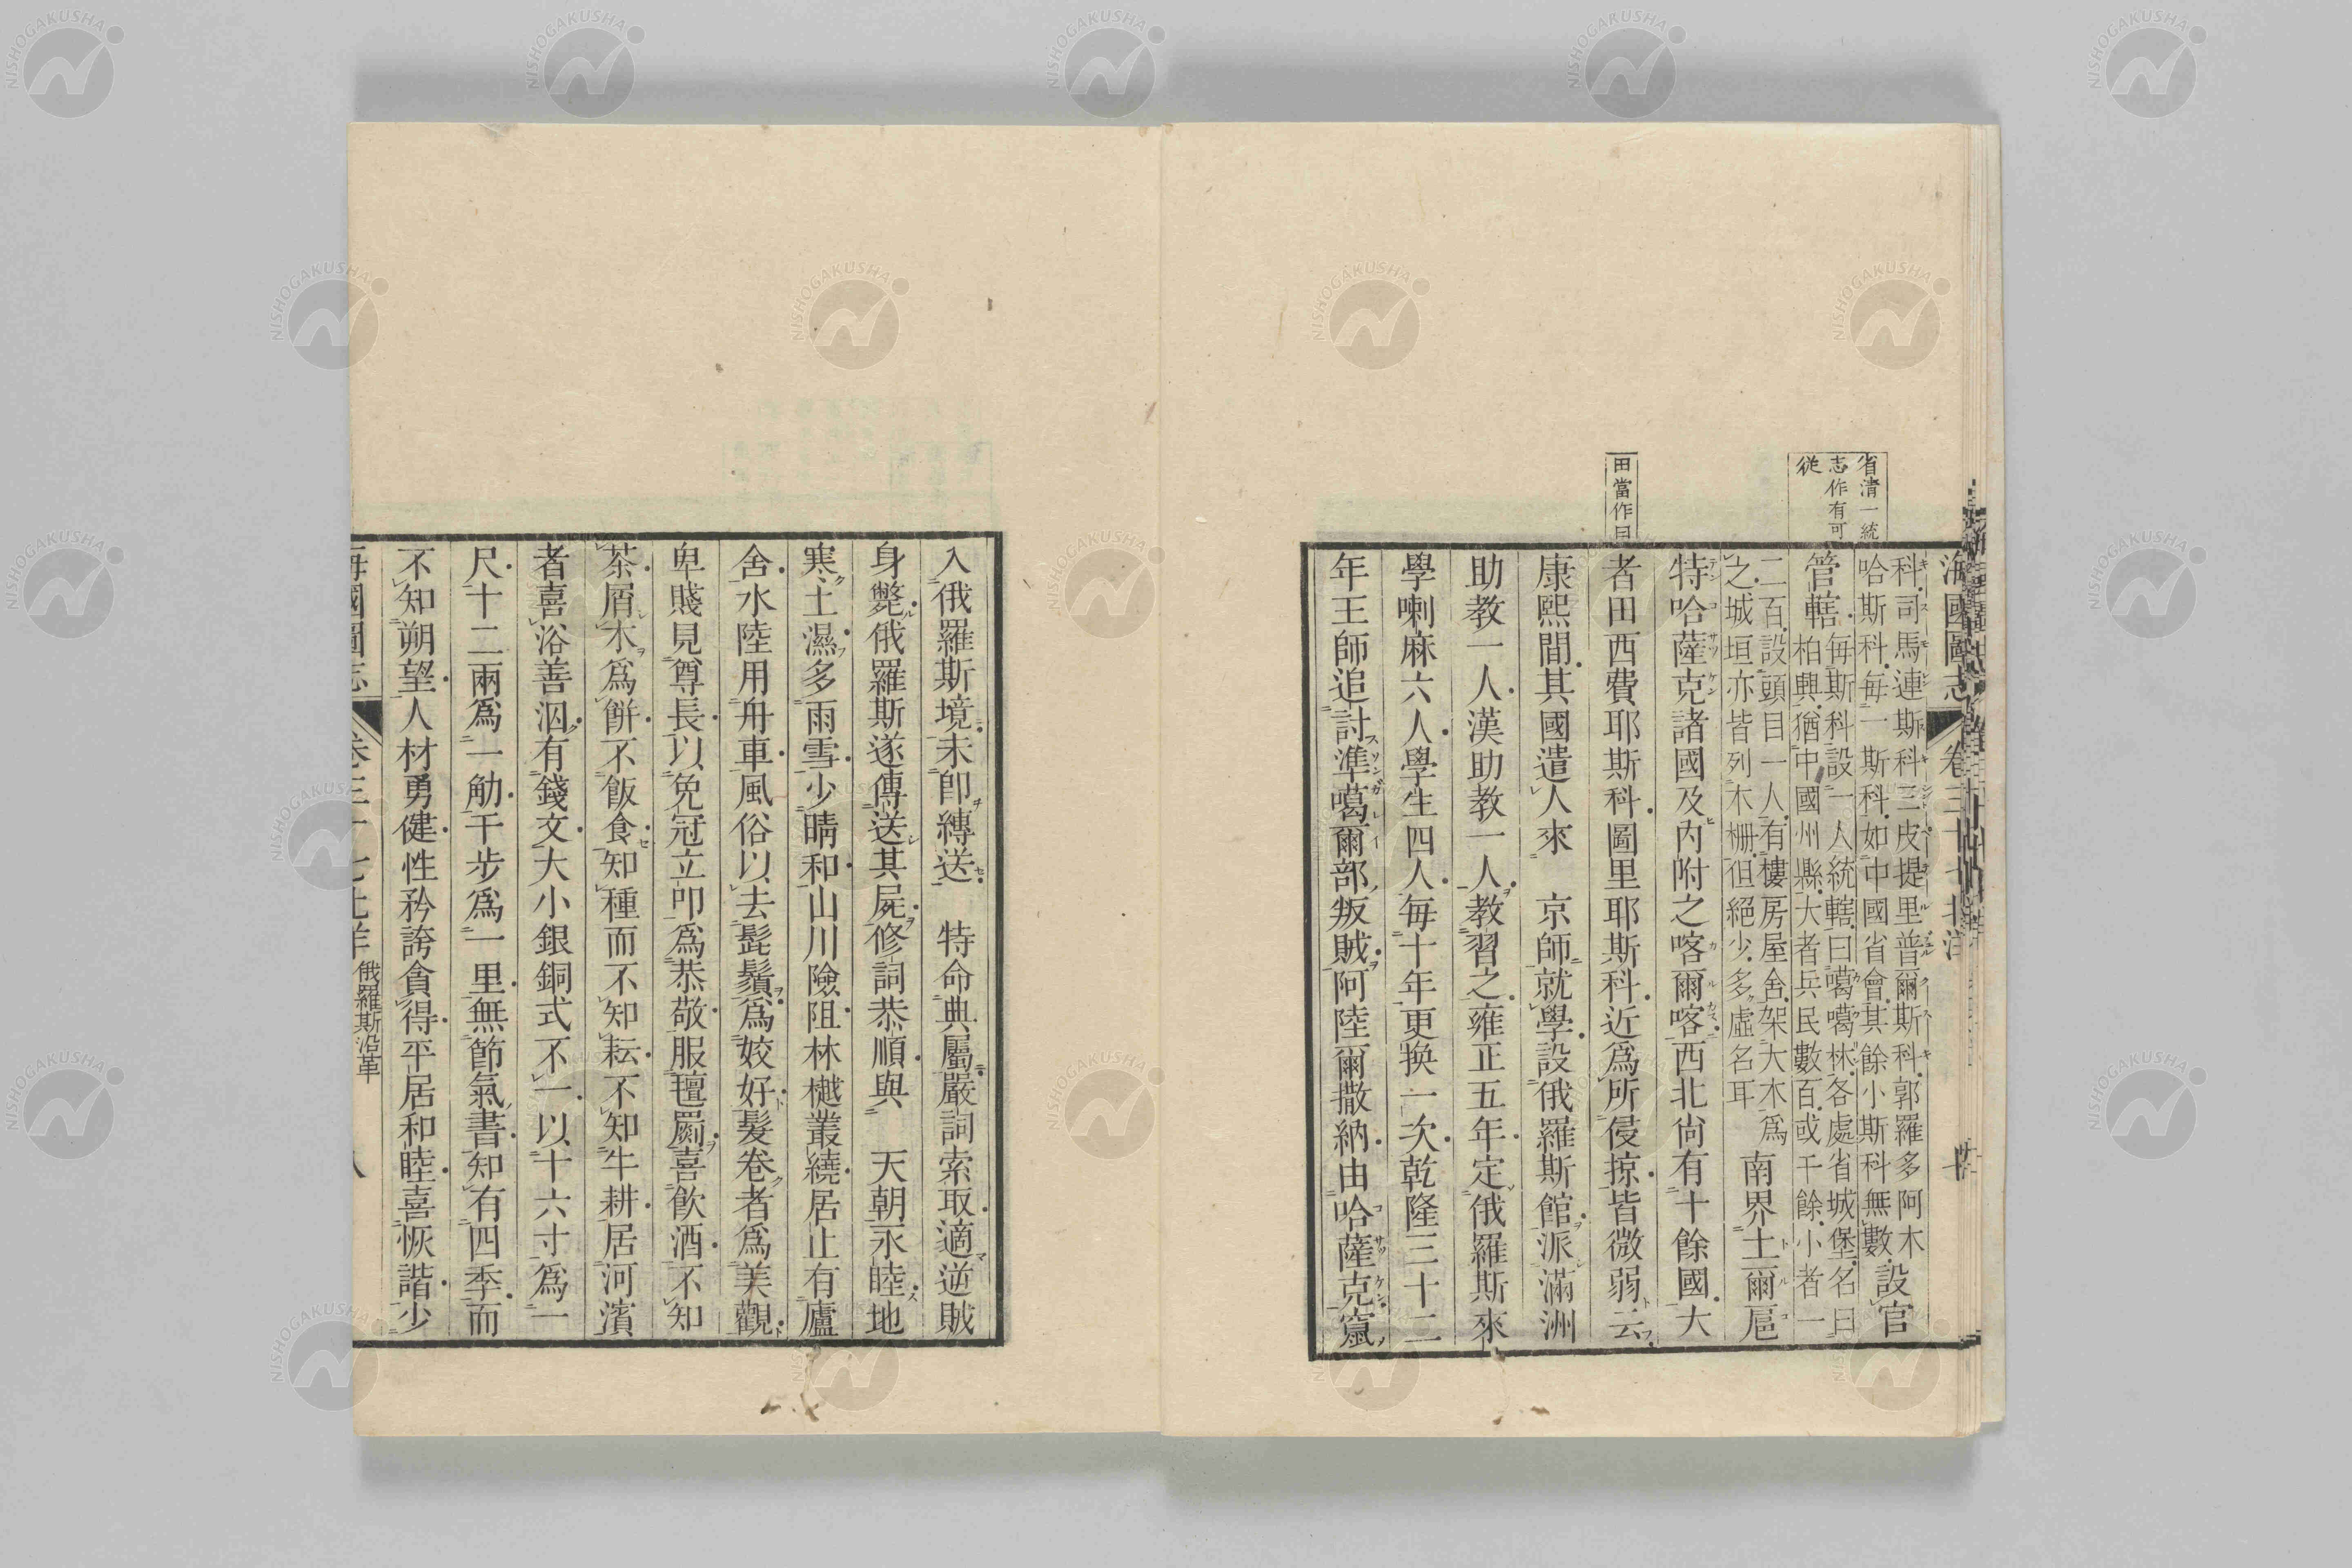 省清一統
志作有可
從
田當作曰
海國圖志 卷三十七 北洋
科司馬連斯科三皮提里普爾斯科郭羅多阿木
哈斯科每一斯科如中國省會其餘小斯科無數設官
管轄每斯科設一人統轄曰噶噶林各處省城堡名曰
柏興猶中國州縣大者兵民數百或千餘小者一
二百設頭目一人有樓房屋舍架大木爲
之城垣亦皆列木柵但絕少多虛名耳南界土爾扈
特哈薩克諸國及內附之喀爾喀西北尚有十餘國大
者田西費耶斯科圖里耶斯科近爲所侵掠皆微弱云
康熙間其國遣人來 京師就學設俄羅斯館派滿洲
助教一人漢助教一人教習之雍正五年定俄羅斯來
學喇麻六人學生四人每十年更換一次乾隆三十二
年王師追討準噶爾部叛賊阿陸爾撒納由哈薩克竄
入俄羅斯境未卽縛送 特命典屬嚴詞索取適逆賊
身斃俄羅斯遂傳送其屍修詞恭順與 天朝永睦地
寒土濕多雨雪少晴和山川險阻林樾叢繞居止有廬
舍水陸用舟車風俗以去髭鬚爲姣好髮卷者爲美觀
卑賤見尊長以免冠立叩爲恭敬服氊罽喜飲酒不知
茶屑木爲餅不飯食知種而不知耘不知牛耕居河濱
者喜浴善泅有錢文大小銀銅式不一以十六寸爲一
尺十二兩爲一觔千步爲一里無節氣書知有四季而
不知朔望人材勇健性矜誇貪得平居和睦喜恢諧少
海國圖志 卷三十七 北洋 俄羅斯沿革 八